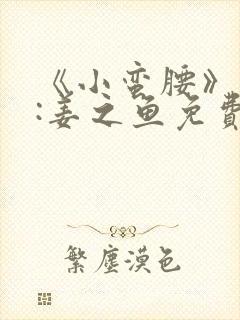 《小蛮腰》
:姜之鱼免费
繁尘漠色